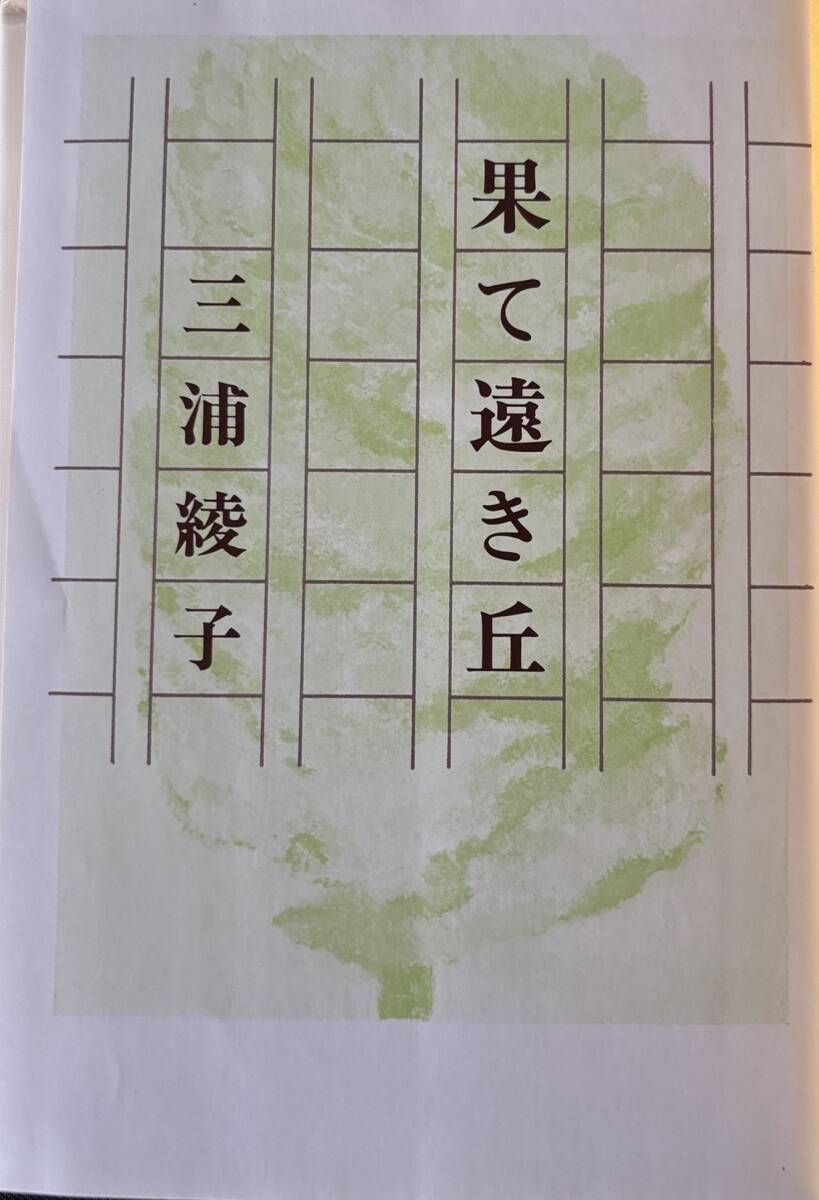 果て遠き丘
三浦綾子